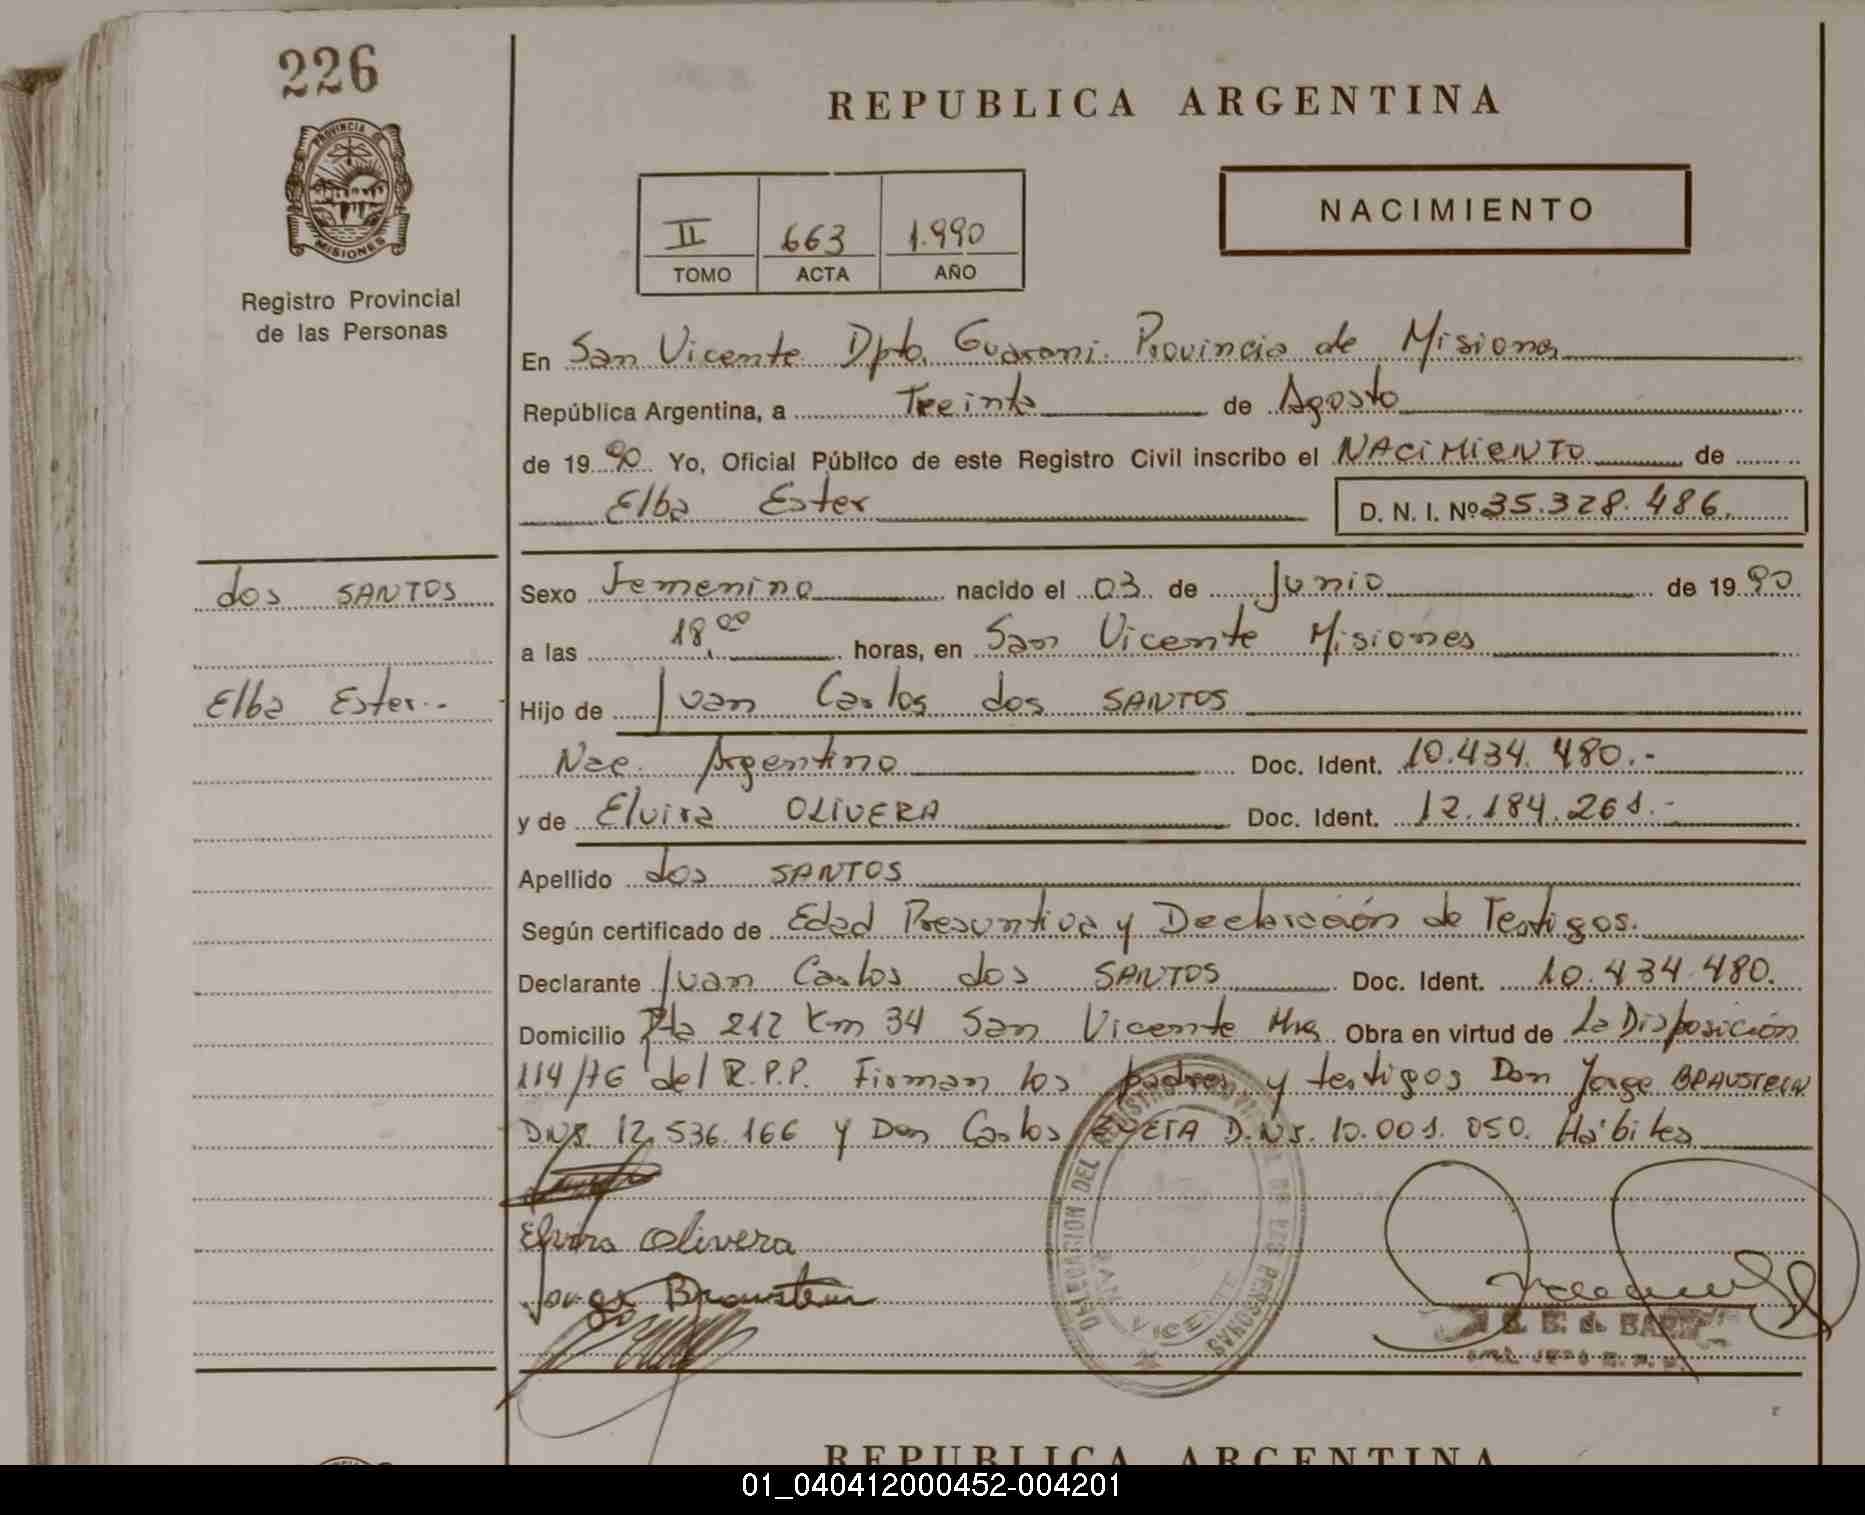 226
PROVINCIA DE
MISIONES
Registro Provincial
de las Personas
REPUBLICA ARGENTINA
II 663 1.990
TOMO ACTA AÑO
NACIMIENTO
En San Vicente Dpto. Guarani. Provincia de Misiones
República Argentina, a Treinta de Agosto
de 1990 Yo, Oficial Público de este Registro Civil inscribo el NACIMIENTO de
Elba Ester D. N. I. Nº 35.328.486.
dos SANTOS
Elba Ester.-
Sexo Femenino nacido el 03 de Junio de 1990
a las 18,00 horas, en San Vicente Misiones
Hijo de Juan Carlos dos SANTOS
Nac. Argentino Doc. Ident. 10.434.480.-
y de Elvira OLIVERA Doc. Ident. 12.184.261.-
Apellido dos SANTOS
Según certificado de Edad Presuntiva y Declaración de Testigos.
Declarante Juan Carlos dos SANTOS Doc. Ident. 10.434.480.
Domicilio Rta 212 Km 34 San Vicente Mns Obra en virtud de La Disposición
114/76 del R.P.P. Firman los padres y testigos Don Jorge BRAUSTEIN
DNI. 12.536.166 y Don Carlos D.NI. 10.001.050. Hábiles
Elvira Olivera
Jorge Braustein
DELEGACION DEL REGISTRO PROVINCIAL DE LAS PERSONAS
SAN VICENTE
REPUBLICA ARGENTINA
01_040412000452-004201